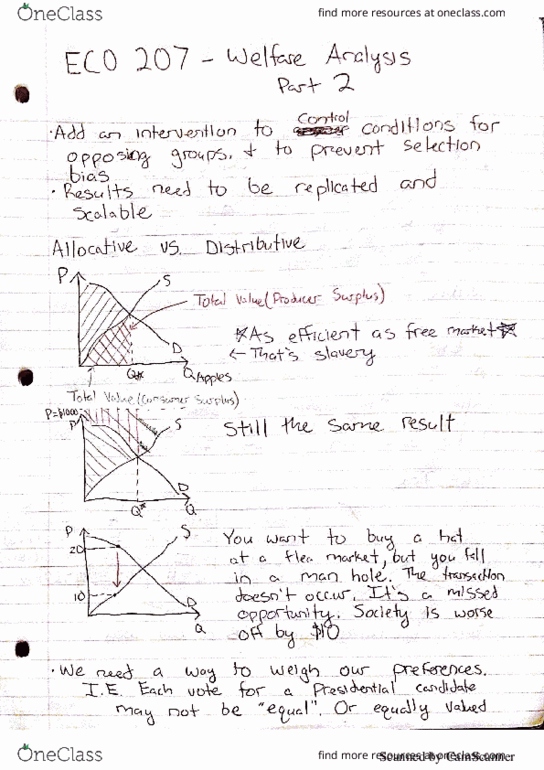 OneClass
find more resources at oneclass.com
ECO 207 - Welfare Analysis
Part 2
Control
· Add an intervention to conditions for
opposing groups, + to prevent selection
bias
· Results need to be replicated and
scalable
Allocative vs. Distributive
P
S
Total Value (Producer Surplus)
*As efficient as free market*
← That's slavery
D
Q* Q Apples
Total Value (Consumer Surplus)
P=$1000
P
S
Still the same result
D
Q* Q
P
S
20
10
D
Q
You want to buy a hat
at a flea market, but you fall
in a man hole. The transaction
doesn't occur. It's a missed
opportunity. Society is worse
off by $10
· We need a way to weigh our preferences.
I.E. Each vote for a Presidential candidate
may not be "equal". Or equally valued
OneClass
find more resources at oneclass.com
Scanned by CamScanner